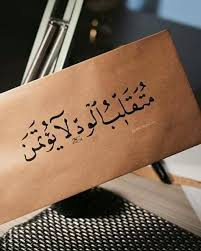 مُتَقَلِّبُ الْوِدِّ لَا يُؤْتَمَنْ